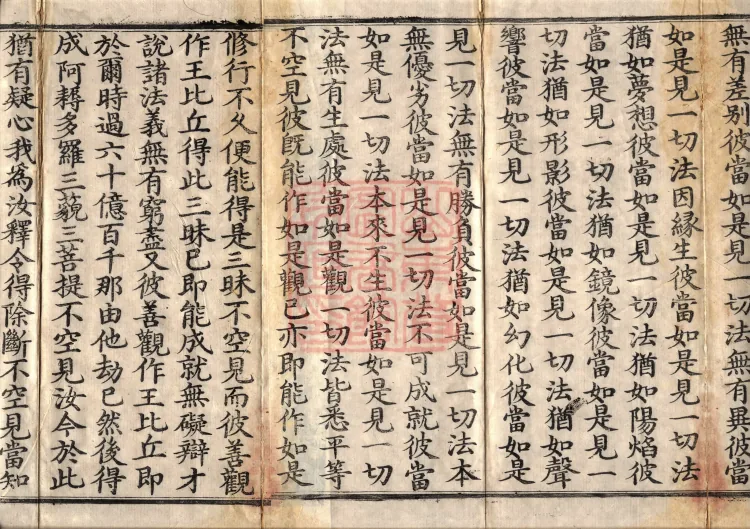 無有差別彼當如是見一切法無有異彼當
如是見一切法因緣生彼當如是見一切法
猶如夢想彼當如是見一切法猶如陽焰彼
當如是見一切法猶如鏡像彼當如是見一
切法猶如形影彼當如是見一切法猶如聲
響彼當如是見一切法猶如幻化彼當如是
見一切法無有勝負彼當如是見一切法本
無優劣彼當如是見一切法不可成就彼當
如是見一切法本來不生彼當如是見一切
法無有生處彼當如是觀一切法皆悉平等
不空見彼旣能作如是觀已亦即能作如是
修行不久便能得是三昧不空見而彼善觀
作王比丘得此三昧已即能成就無礙辯才
說諸法義無有窮盡又彼善觀作王比丘即
於爾時過六十億百千那由他劫已然後得
成阿耨多羅三藐三菩提不空見汝今於此
猶有疑心我為汝釋令得除斷不空見當知